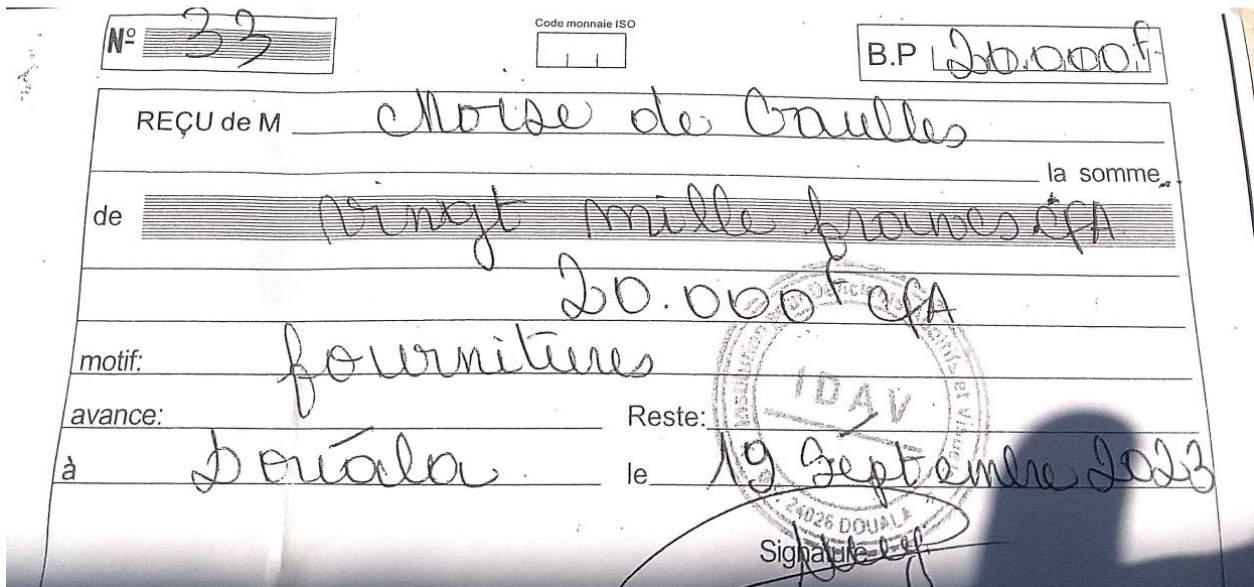 Nº 33
Code monnaie ISO
B.P 20.000f
REÇU de M Moise de Gaulles
la somme
de Vingt mille francs CFA
20.000f CFA
motif: fournitures
avance: Reste:
à Douala le 19 Septembre 2023
IDAV
24026 DOUALA
Signature